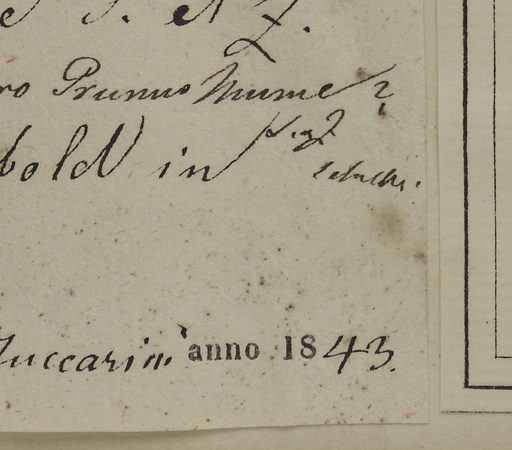 S. et Z.
ro Prunus Mume?
bold in
Zuccarini anno 1843.